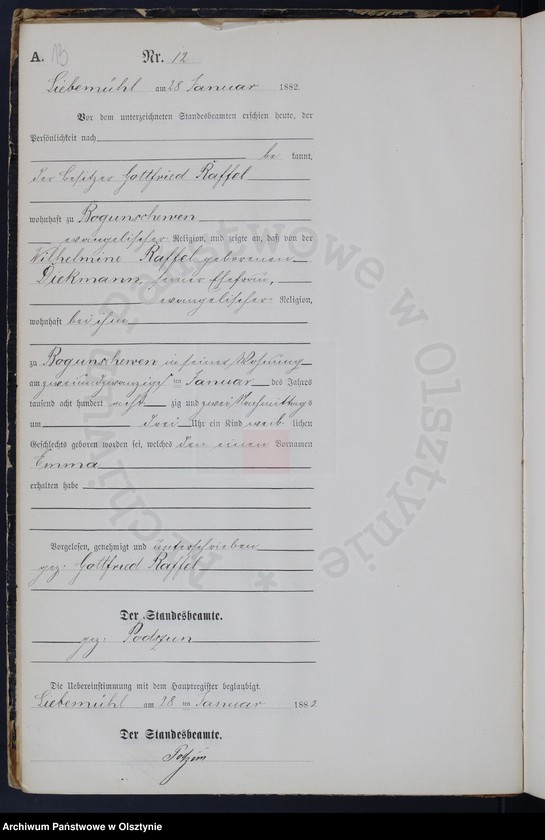 A. 13 Nr. 12
Liebemühl am 28 Januar 1882.
Vor dem unterzeichneten Standesbeamten erschien heute, der
Persönlichkeit nach
be kannt,
der Besitzer Gottfried Raffel
wohnhaft zu Bogunschewen
evangelischer Religion, und zeigte an, daß von der
Wilhelmine Raffel geborenen
Dickmann, seiner Ehefrau,
evangelischer Religion,
wohnhaft bei ihm,
zu Bogunschewen in seiner Wohnung
am zweiundzwanzigsten Januar des Jahres
tausend acht hundert acht zig und zwei Nachmittags
um drei Uhr ein Kind weib lichen
Geschlechts geboren worden sei, welches den einen Vornamen
Emma
erhalten habe
Vorgelesen, genehmigt und unterschrieben
gez. Gottfried Raffel
Der Standesbeamte.
gez. Podszun
Die Uebereinstimmung mit dem Hauptregister beglaubigt.
Liebemühl am 28 ten Januar 1882
Der Standesbeamte.
Archiwum Państwowe w Olsztynie *
Archiwum Państwowe w Olsztynie